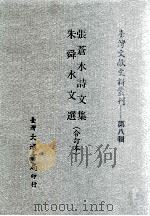 臺灣文獻史料叢刊 第八輯
張蒼水詩文集
朱舜水文選
(合訂本)
臺灣大通書局印行